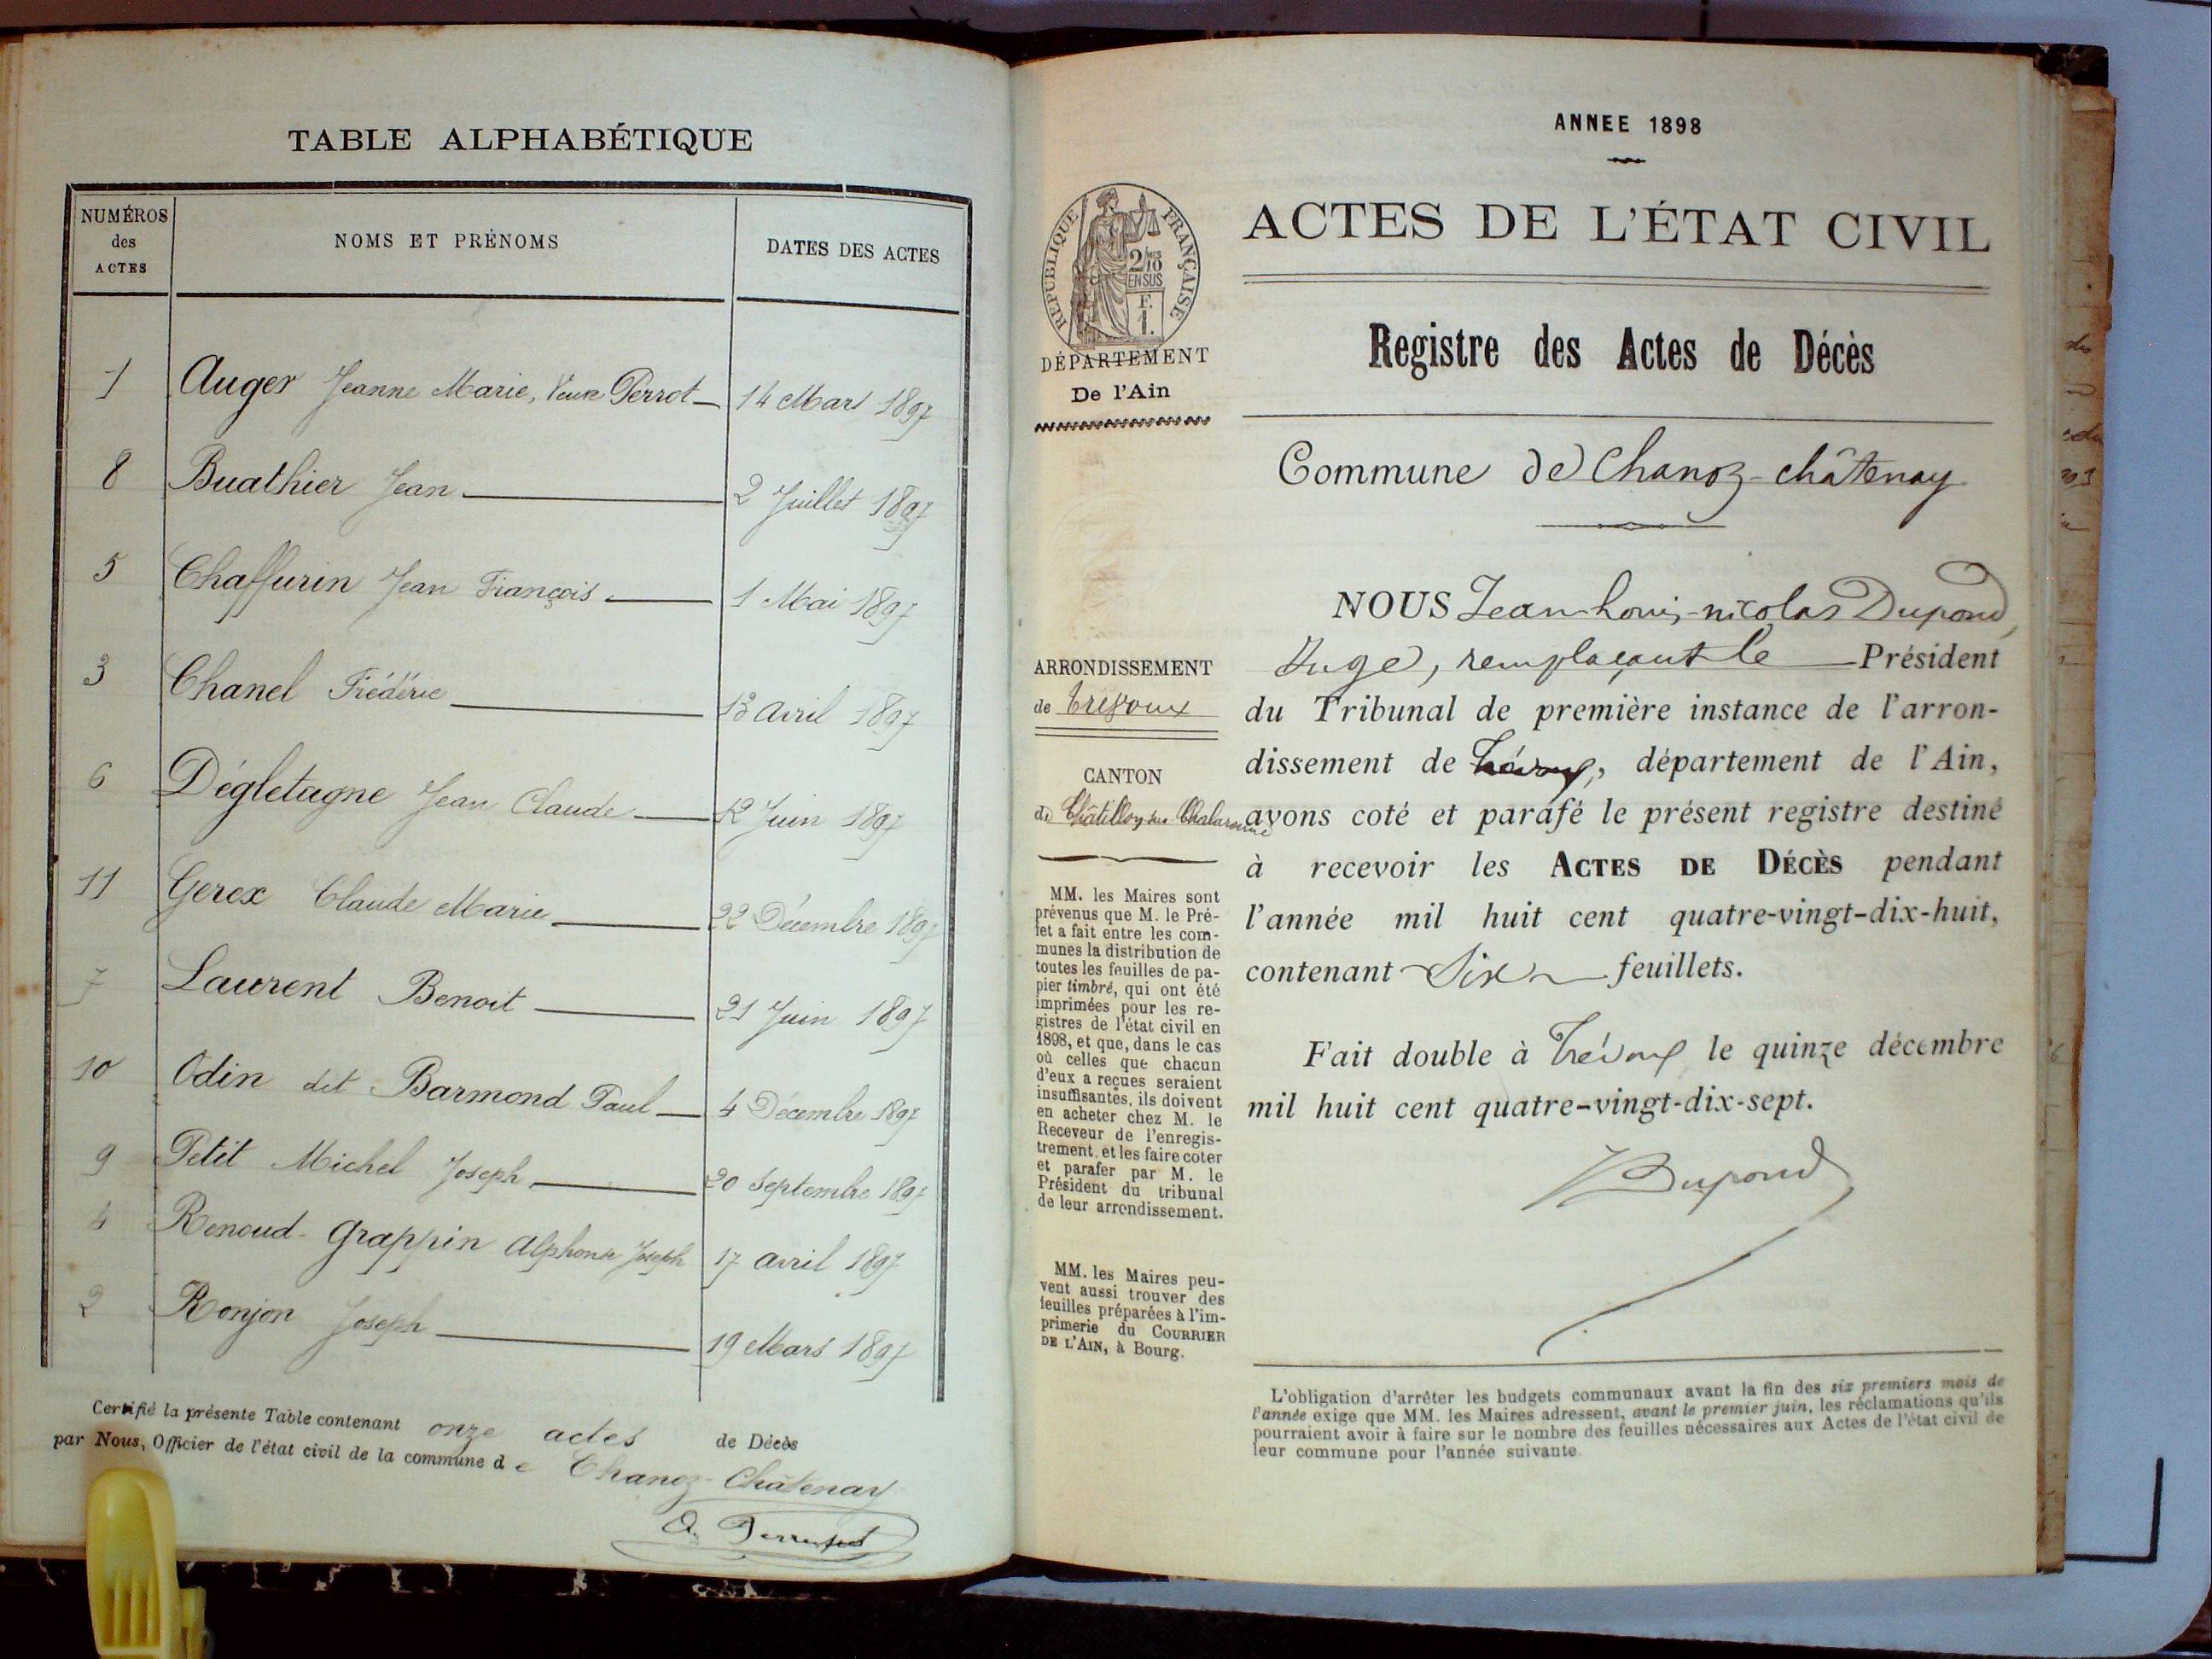 TABLE ALPHABÉTIQUE
NUMÉROS des ACTES
NOMS ET PRÉNOMS
DATES DES ACTES
1 Auger Jeanne Marie, Veuve Perrot 14 Mars 1897
8 Buathier Jean 2 Juillet 1897
5 Chaffurin Jean François 1 Mai 1897
3 Chanel Frédéric 13 Avril 1897
6 Dégletagne Jean Claude 12 Juin 1897
11 Gerex Claude Marie 22 Décembre 1897
7 Laurent Benoit 21 Juin 1897
10 Odin dit Barmond Paul 4 Décembre 1897
9 Petit Michel Joseph 20 Septembre 1897
4 Renoud-Grappin Alphonse Joseph 17 Avril 1897
2 Ronjon Joseph 19 Mars 1897
Certifié la présente Table contenant onze actes de Décès
par Nous, Officier de l'état civil de la commune de Chanoz-Châtenay
ANNEE 1898
RÉPUBLIQUE FRANÇAISE
2/10 EN SUS
F. 1.
DÉPARTEMENT
De l'Ain
ACTES DE L'ÉTAT CIVIL
Registre des Actes de Décès
Commune de Chanoz-châtenay
ARRONDISSEMENT
de Trévoux
CANTON
de Châtillon sur Chalaronne
MM. les Maires sont
prévenus que M. le Pré-
fet a fait entre les com-
munes la distribution de
toutes les feuilles de pa-
pier timbré, qui ont été
imprimées pour les re-
gistres de l'état civil en
1898, et que, dans le cas
où celles que chacun
d'eux a reçues seraient
insuffisantes, ils doivent
en acheter chez M. le
Receveur de l'enregis-
trement, et les faire coter
et parafer par M. le
Président du tribunal
de leur arrondissement.
MM. les Maires peu-
vent aussi trouver des
feuilles préparées à l'im-
primerie du COURRIER
DE L'AIN, à Bourg.
NOUS Jean-Louis-nicolas Dupond,
Juge, remplaçant le Président
du Tribunal de première instance de l'arron-
dissement de Trévoux, département de l'Ain,
avons coté et parafé le présent registre destiné
à recevoir les ACTES DE DÉCÈS pendant
l'année mil huit cent quatre-vingt-dix-huit,
contenant Six feuillets.
Fait double à Trévoux le quinze décembre
mil huit cent quatre-vingt-dix-sept.
Dupond
L'obligation d'arrêter les budgets communaux avant la fin des six premiers mois de
l'année exige que MM. les Maires adressent, avant le premier juin, les réclamations qu'ils
pourraient avoir à faire sur le nombre des feuilles nécessaires aux Actes de l'état civil de
leur commune pour l'année suivante.